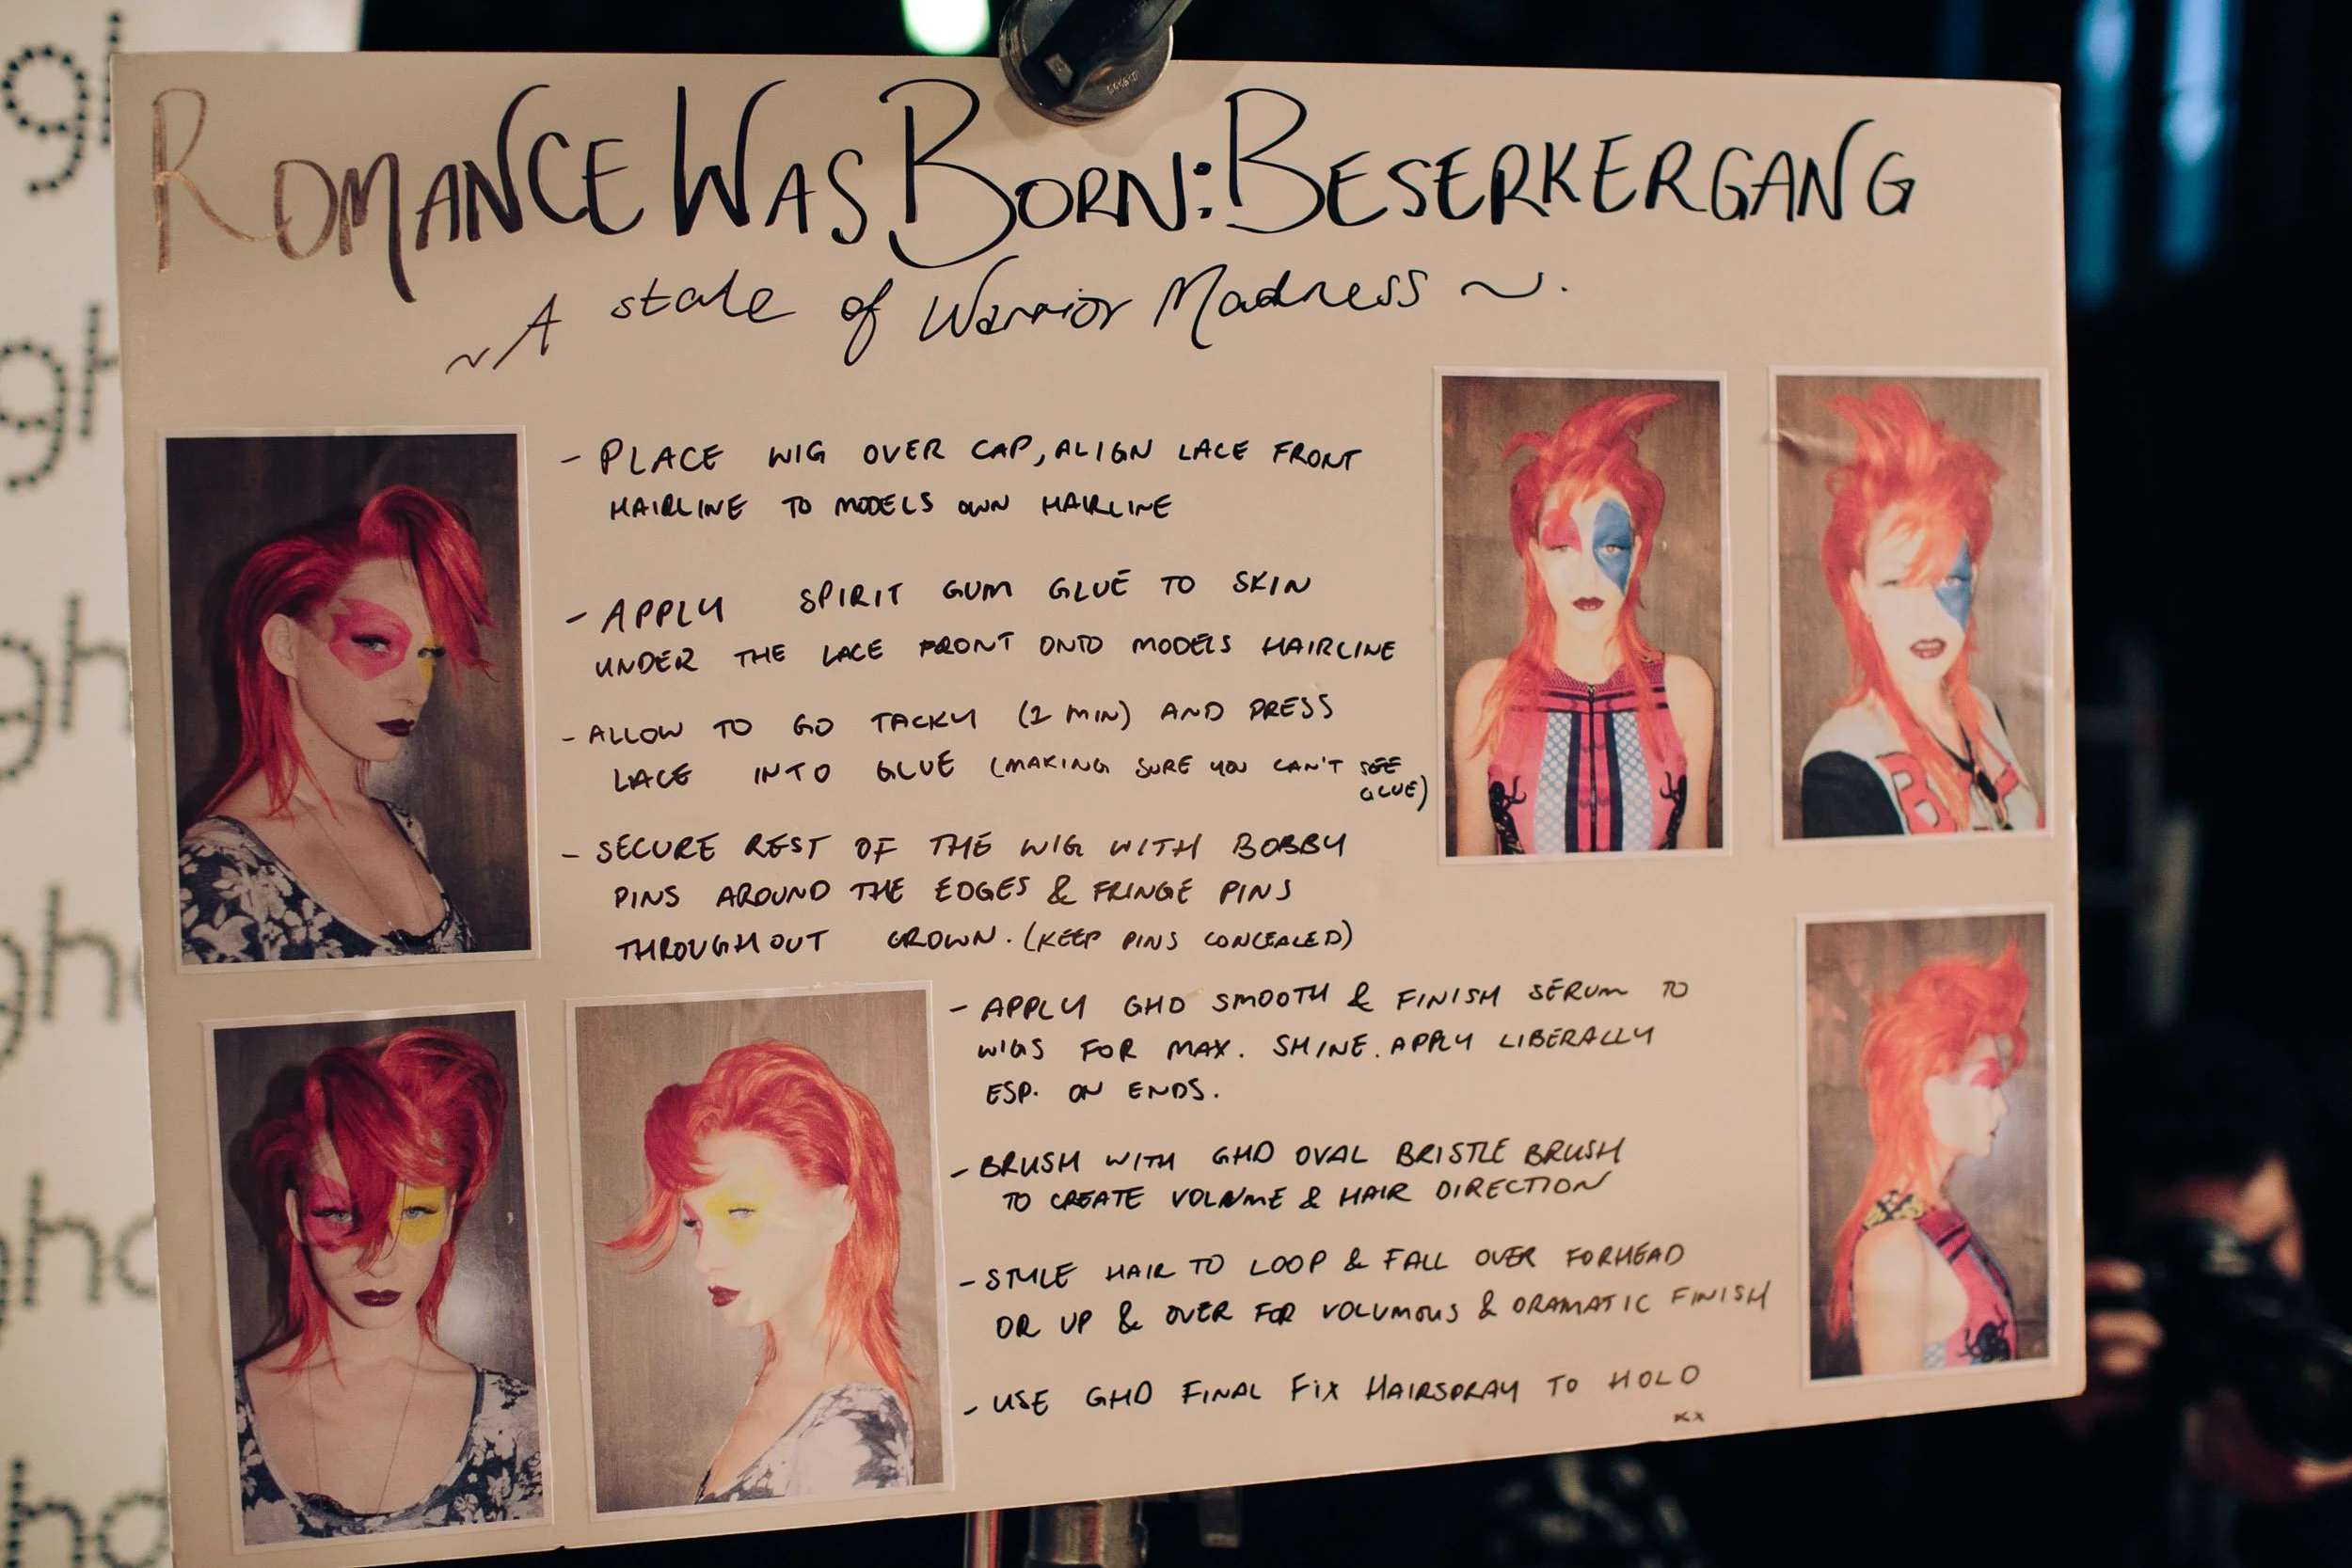 ROMANCE WAS BORN: BESERKERGANG
~ A state of Warrior Madness ~.
- PLACE WIG OVER CAP, ALIGN LACE FRONT
HAIRLINE TO MODELS OWN HAIRLINE
- APPLY SPIRIT GUM GLUE TO SKIN
UNDER THE LACE FRONT ONTO MODELS HAIRLINE
- ALLOW TO GO TACKY (1 MIN) AND PRESS
LACE INTO GLUE (MAKING SURE YOU CAN'T SEE
GLUE)
- SECURE REST OF THE WIG WITH BOBBY
PINS AROUND THE EDGES & FRINGE PINS
THROUGHOUT CROWN. (KEEP PINS CONCEALED)
- APPLY GHD SMOOTH & FINISH SERUM TO
WIGS FOR MAX. SHINE. APPLY LIBERALLY
ESP. ON ENDS.
- BRUSH WITH GHD OVAL BRISTLE BRUSH
TO CREATE VOLUME & HAIR DIRECTION
- STYLE HAIR TO LOOP & FALL OVER FORHEAD
OR UP & OVER FOR VOLUMOUS & DRAMATIC FINISH
- USE GHD FINAL FIX HAIRSPRAY TO HOLD
KX
gh
gh
gh
ghd
ghd
hd